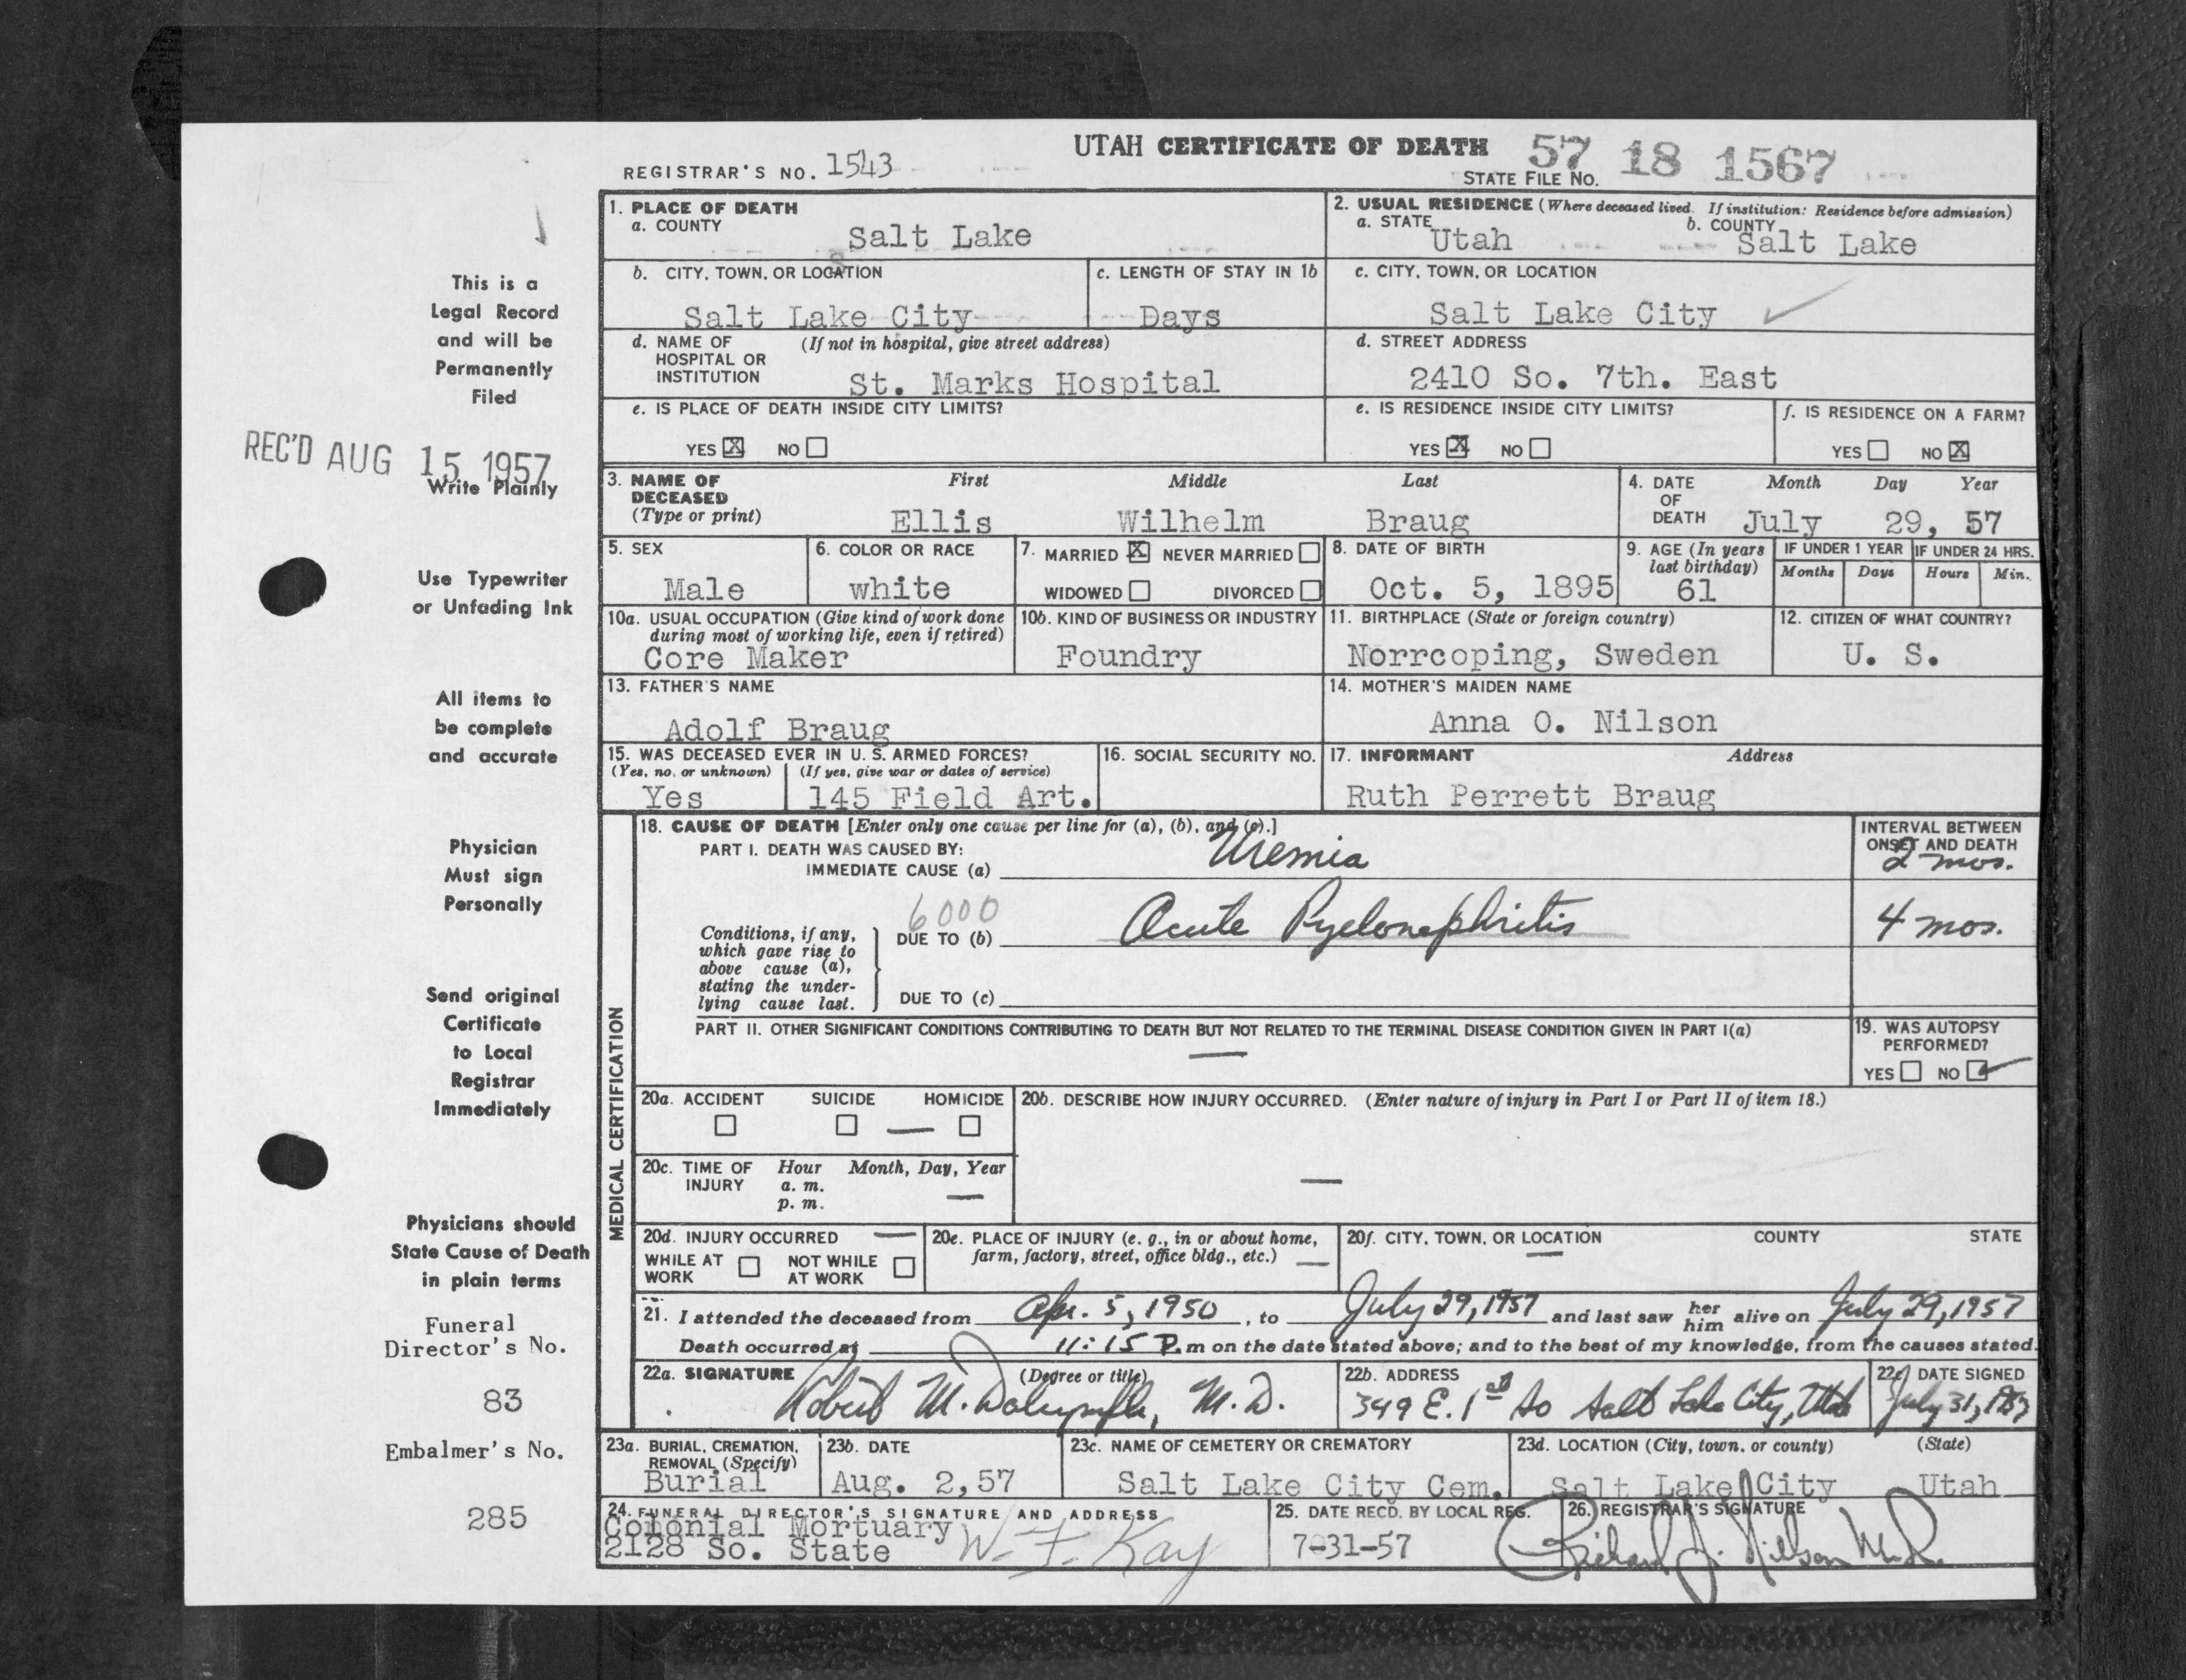 UTAH CERTIFICATE OF DEATH 57 18 1567
REGISTRAR'S NO. 1543
STATE FILE NO.
1. PLACE OF DEATH
a. COUNTY
Salt Lake
2. USUAL RESIDENCE (Where deceased lived. If institution: Residence before admission)
a. STATE Utah b. COUNTY Salt Lake
b. CITY, TOWN, OR LOCATION
Salt Lake City
c. LENGTH OF STAY IN 1b
Days
c. CITY, TOWN, OR LOCATION
Salt Lake City
d. NAME OF HOSPITAL OR INSTITUTION (If not in hospital, give street address)
St. Marks Hospital
d. STREET ADDRESS
2410 So. 7th. East
e. IS PLACE OF DEATH INSIDE CITY LIMITS?
YES X NO
e. IS RESIDENCE INSIDE CITY LIMITS?
YES X NO
f. IS RESIDENCE ON A FARM?
YES NO X
3. NAME OF DECEASED (Type or print)
First Middle Last
Ellis Wilhelm Braug
4. DATE OF DEATH Month Day Year
July 29, 57
5. SEX
Male
6. COLOR OR RACE
white
7. MARRIED X NEVER MARRIED
WIDOWED DIVORCED
8. DATE OF BIRTH
Oct. 5, 1895
9. AGE (In years last birthday)
61
IF UNDER 1 YEAR IF UNDER 24 HRS.
Months Days Hours Min.
10a. USUAL OCCUPATION (Give kind of work done during most of working life, even if retired)
Core Maker
10b. KIND OF BUSINESS OR INDUSTRY
Foundry
11. BIRTHPLACE (State or foreign country)
Norrcoping, Sweden
12. CITIZEN OF WHAT COUNTRY?
U. S.
13. FATHER'S NAME
Adolf Braug
14. MOTHER'S MAIDEN NAME
Anna O. Nilson
15. WAS DECEASED EVER IN U. S. ARMED FORCES?
(Yes, no. or unknown) (If yes, give war or dates of service)
Yes 145 Field Art.
16. SOCIAL SECURITY NO.
17. INFORMANT Address
Ruth Perrett Braug
MEDICAL CERTIFICATION
18. CAUSE OF DEATH [Enter only one cause per line for (a), (b), and (c).]
PART I. DEATH WAS CAUSED BY:
IMMEDIATE CAUSE (a) Uremia
INTERVAL BETWEEN ONSET AND DEATH
2 mos.
6000
Conditions, if any, which gave rise to above cause (a), stating the underlying cause last.
DUE TO (b) Acute Pyelonephritis
4 mos.
DUE TO (c)
PART II. OTHER SIGNIFICANT CONDITIONS CONTRIBUTING TO DEATH BUT NOT RELATED TO THE TERMINAL DISEASE CONDITION GIVEN IN PART I(a)
—
19. WAS AUTOPSY PERFORMED?
YES NO ✓
20a. ACCIDENT SUICIDE HOMICIDE
—
20b. DESCRIBE HOW INJURY OCCURRED. (Enter nature of injury in Part I or Part II of item 18.)
—
20c. TIME OF INJURY Hour Month, Day, Year
a. m.
p. m.
—
20d. INJURY OCCURRED —
WHILE AT WORK NOT WHILE AT WORK
20e. PLACE OF INJURY (e. g., in or about home, farm, factory, street, office bldg., etc.) —
20f. CITY, TOWN, OR LOCATION COUNTY STATE
—
21. I attended the deceased from Apr. 5, 1950, to July 29, 1957 and last saw her him alive on July 29, 1957
Death occurred at 11:15 P.m on the date stated above; and to the best of my knowledge, from the causes stated.
22a. SIGNATURE (Degree or title)
Robert M. Dalrymple, M.D.
22b. ADDRESS
349 E. 1st So Salt Lake City, Utah
22c. DATE SIGNED
July 31, 1957
23a. BURIAL, CREMATION, REMOVAL (Specify)
Burial
23b. DATE
Aug. 2,57
23c. NAME OF CEMETERY OR CREMATORY
Salt Lake City Cem.
23d. LOCATION (City, town, or county) (State)
Salt Lake City Utah
24. FUNERAL DIRECTOR'S SIGNATURE AND ADDRESS
Colonial Mortuary W. F. Kay
2128 So. State
25. DATE RECD. BY LOCAL REG.
7-31-57
26. REGISTRAR'S SIGNATURE
Richard J. Nilson M.D.
This is a
Legal Record
and will be
Permanently
Filed
REC'D AUG 15 1957
Write Plainly
Use Typewriter
or Unfading Ink
All items to
be complete
and accurate
Physician
Must sign
Personally
Send original
Certificate
to Local
Registrar
Immediately
Physicians should
State Cause of Death
in plain terms
Funeral
Director's No.
83
Embalmer's No.
285